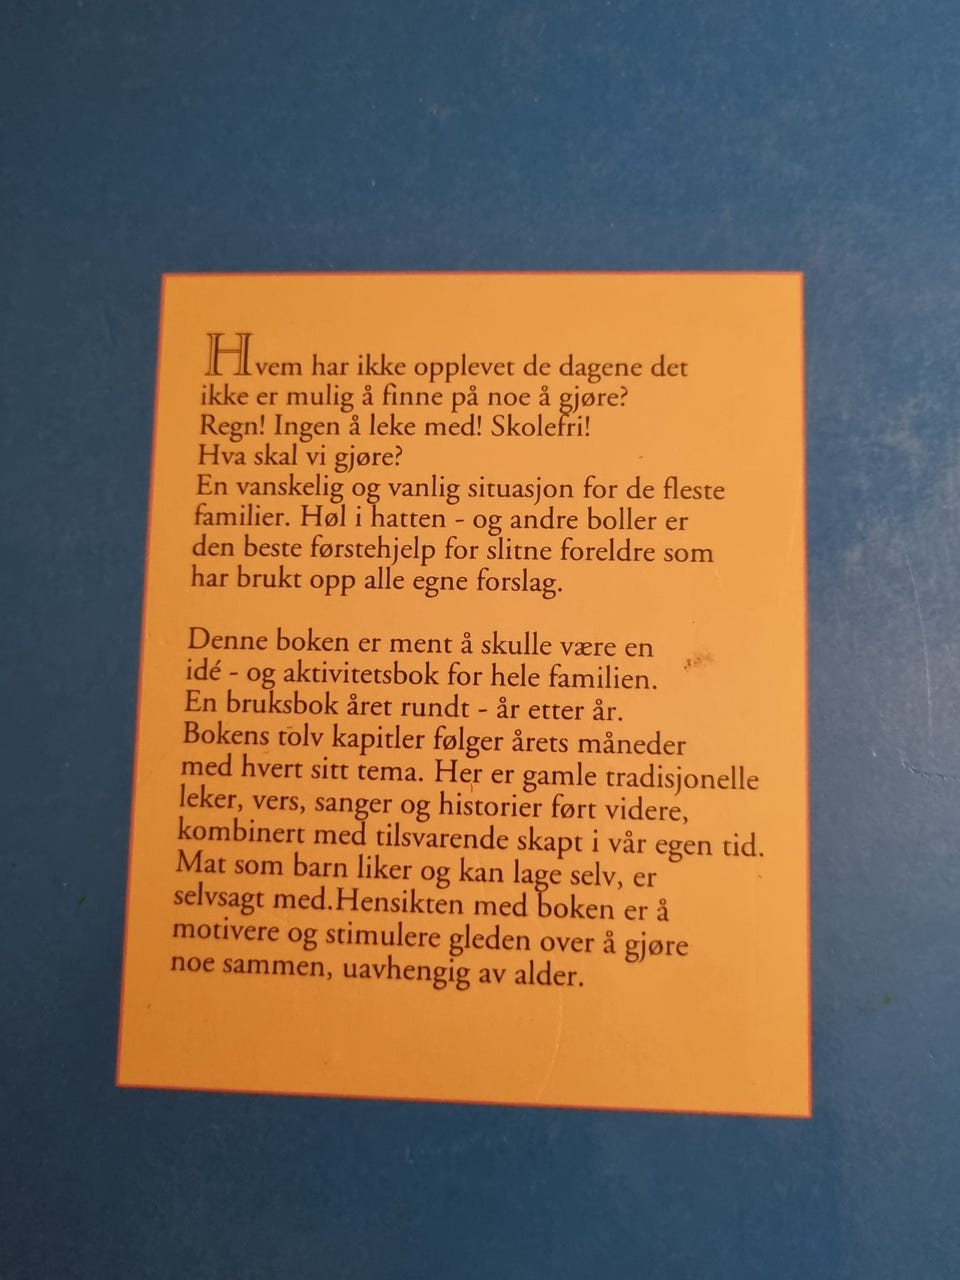 Hvem har ikke opplevet de dagene det
ikke er mulig å finne på noe å gjøre?
Regn! Ingen å leke med! Skolefri!
Hva skal vi gjøre?
En vanskelig og vanlig situasjon for de fleste
familier. Høl i hatten - og andre boller er
den beste førstehjelp for slitne foreldre som
har brukt opp alle egne forslag.
Denne boken er ment å skulle være en
idé - og aktivitetsbok for hele familien.
En bruksbok året rundt - år etter år.
Bokens tolv kapitler følger årets måneder
med hvert sitt tema. Her er gamle tradisjonelle
leker, vers, sanger og historier ført videre,
kombinert med tilsvarende skapt i vår egen tid.
Mat som barn liker og kan lage selv, er
selvsagt med.Hensikten med boken er å
motivere og stimulere gleden over å gjøre
noe sammen, uavhengig av alder.